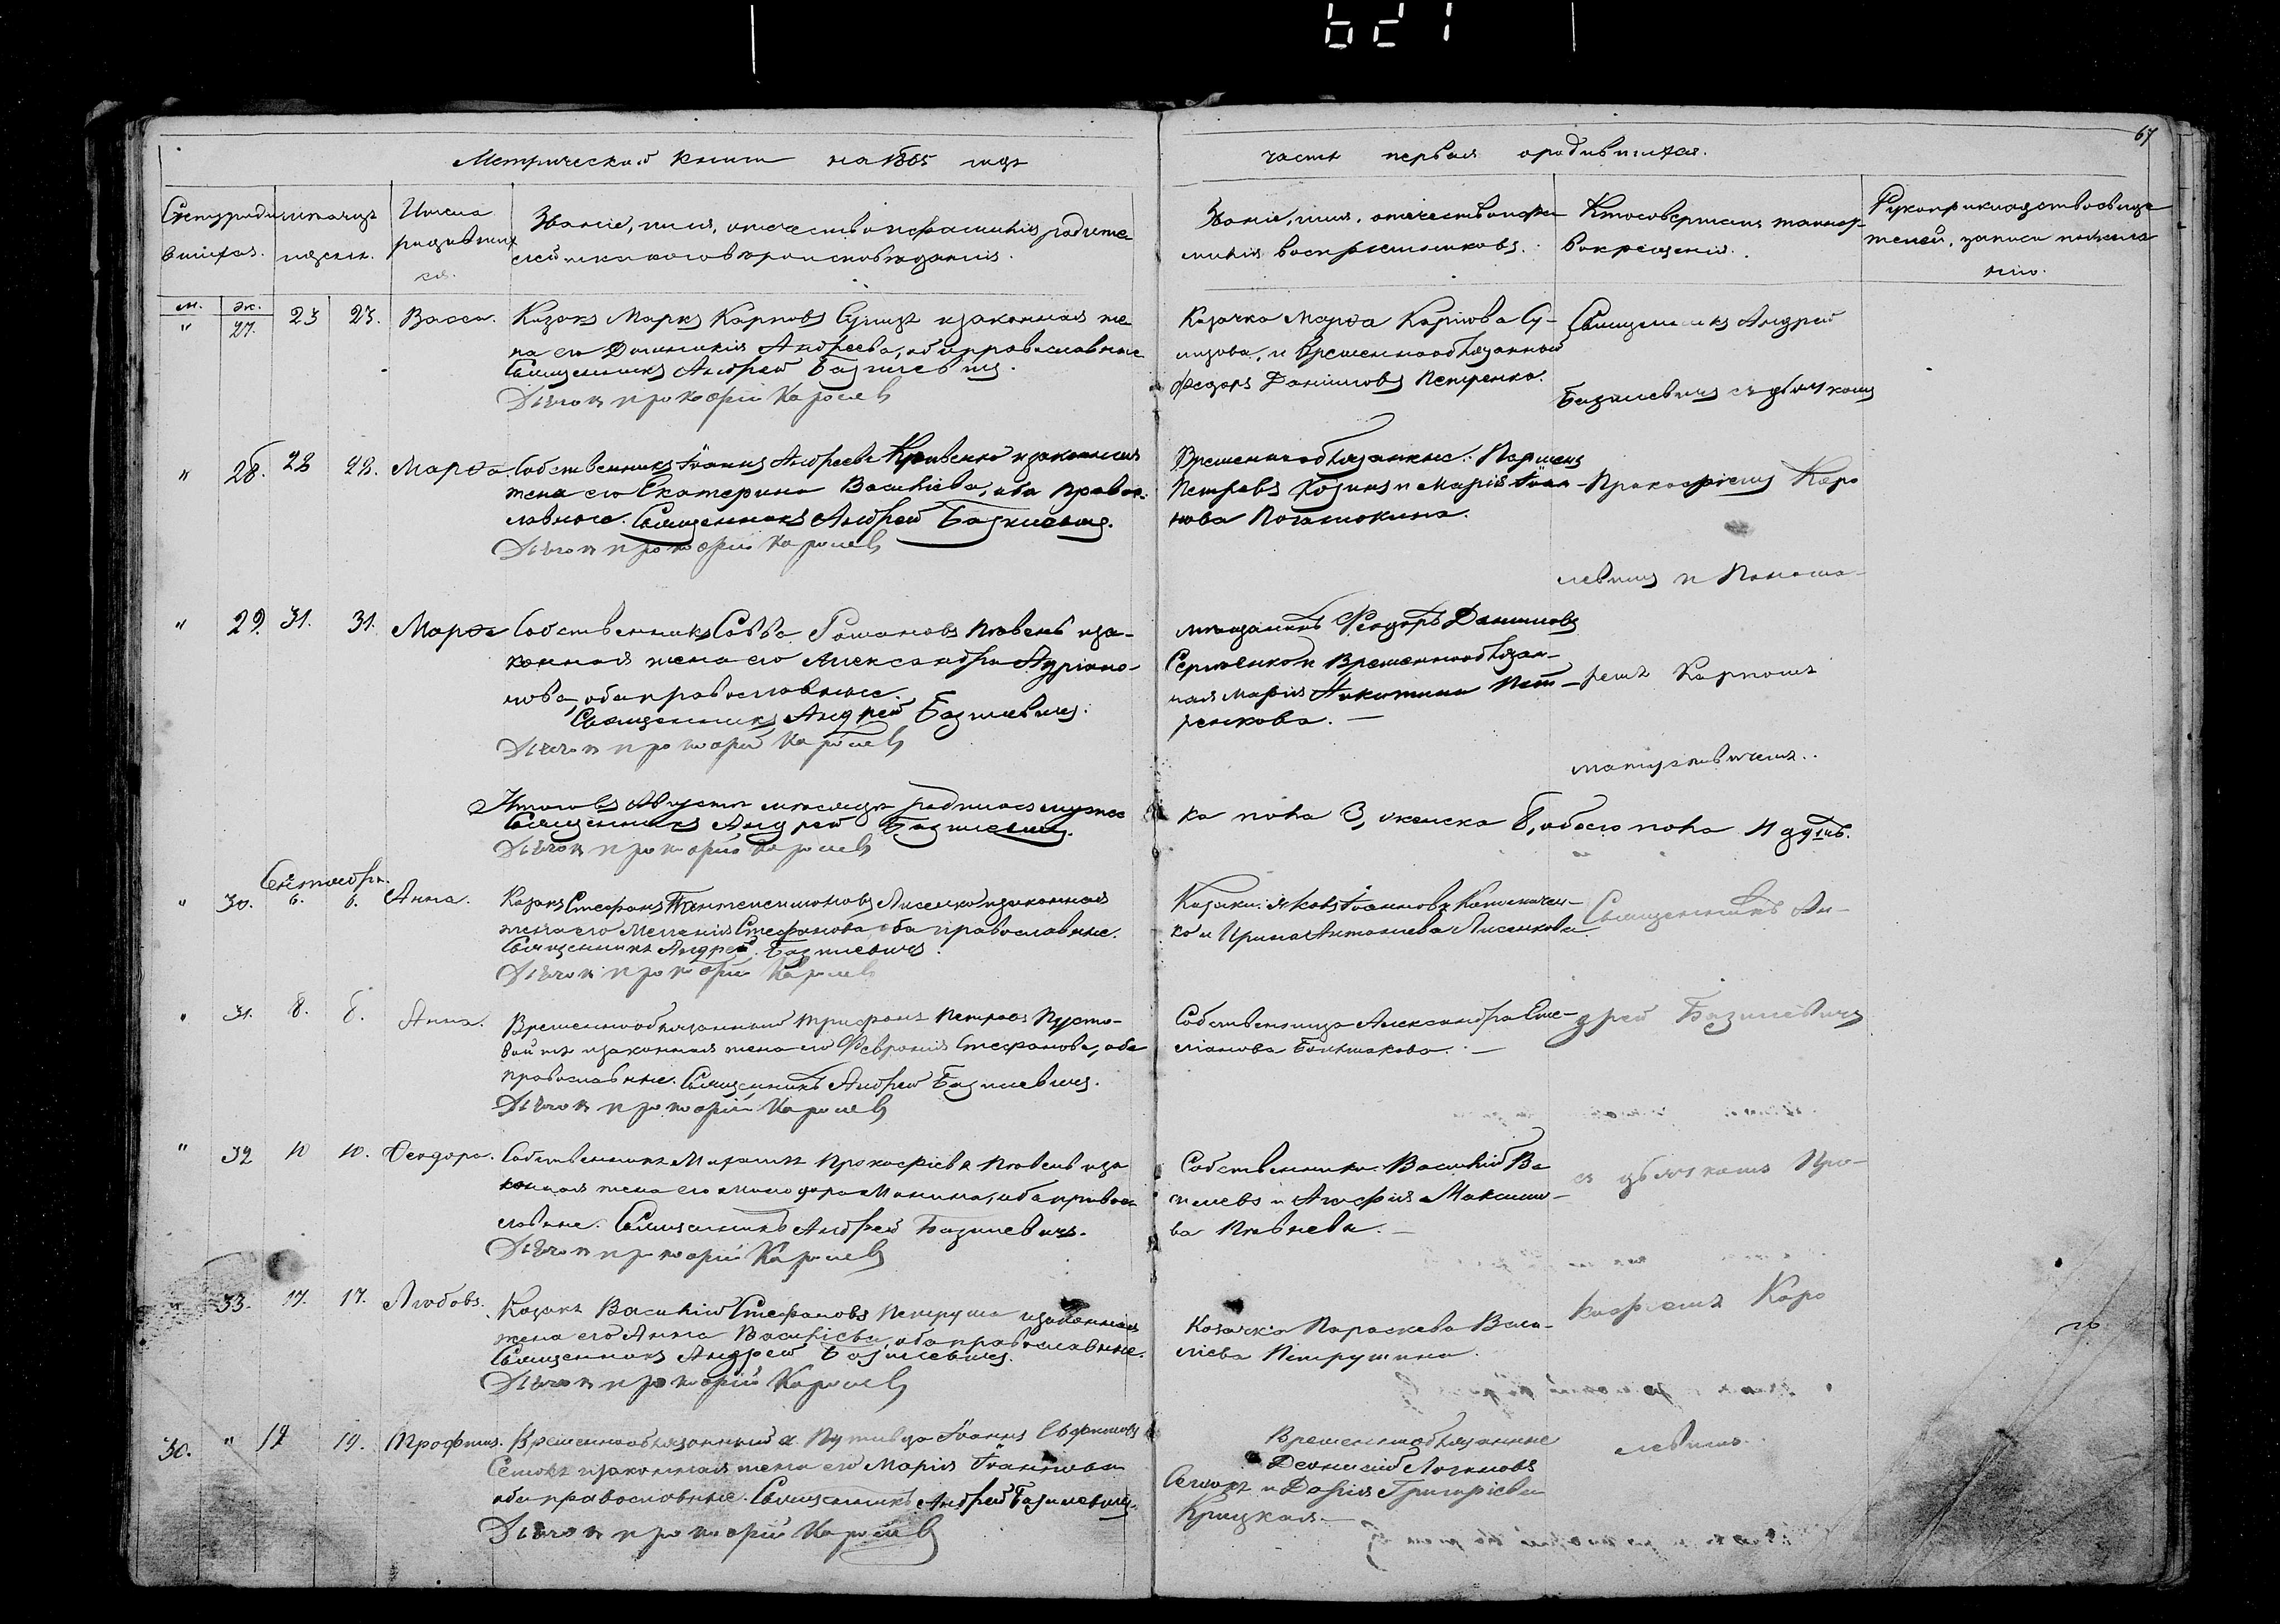 621
67
Метрической книги на 1865 годъ
часть первая ородившихся.
Счетъ родившихся.
мѣсяцъ и день.
Имена родившихся.
Званіе, имя, отечество и фамилія родителей и какого вѣроисповѣданія.
Званіе, имя, отечество и фамилія воспріемниковъ.
Кто совершалъ таинство крещенія.
Рукоприкладство свидетелей, записи по желанію.
м. ж.
" 27. 23 23. Васса. Козакъ Маркъ Карповъ и законная же-
на его Домникія Андреева, оба православные
Священникъ Андрей Базилевичъ.
Дьячокъ Прокофій Королевъ
Козачка Марѳа Карпова
и временнообязанный
Федоръ Даниловъ Петренко.
Священникъ Андрей
Базилевичъ съ дьячкомъ
" 28. 28 28. Марѳа. Собственникъ Іоаннъ Андреевъ Кривенко и законная
жена его Екатерина Василіева, оба правос-
лавные. Священникъ Андрей Базилевичъ.
Дьячокъ Прокофій Королевъ
Временнообязанные: Парменъ
Петровъ и Марія Іоан-
нова
Прокофіемъ Коро
левымъ и Понома-
" 29. 31. 31. Марѳа Собственникъ Савва Романовъ Пивень и за-
конная жена его Александра Адріано-
нова, оба православные.
Священникъ Андрей Базилевичъ.
Дьячокъ Прокофій Королевъ
мещанинъ Феодоръ Даниловъ
и Временнообязан-
ная Марія Никитина Пет-
ренкова. —
ремъ Карпомъ
Матушевичемъ..
Итого въ Августѣ месяцѣ родилось мужес
ка пола 3, женска 8, обоего пола 11 душъ.
Священникъ Андрей Базилевичъ.
Дьячокъ Прокофій Королевъ
Сентябрь.
" 30. 6. 6. Анна. Козакъ Стефанъ Пантелеимоновъ Лисенко и законная
жена его Меланія Стефанова, оба православные.
Священникъ Андрей Базилевичъ.
Дьячокъ Прокофій Королевъ
Козаки: Яковъ Іоанновъ
ко и Ирина Антониева Лисенкова.
Священникъ Ан-
" 31. 8. 8. Анна. Временнообязанный Трифонъ Петровъ Пусто-
войтъ и законная жена его Феврония Стефанова, оба
православные. Священникъ Андрей Базилевичъ.
Дьячокъ Прокофій Королевъ
Собственница Александра Еме-
лианова Большакова. —
дрей Базилевичъ
" 32 10 10. Феодора. Собственникъ Михаилъ Прокофіевъ Пивень и за
конная жена его Манина, оба правос
лавные. Священникъ Андрей Базилевичъ.
Дьячокъ Прокофій Королевъ
Собственники: Василій Ва
силевъ и Агафия Максимо-
ва Пивнева. —
съ дьячкомъ Про-
" 33. 17. 17. Любовь. Козакъ Василій Стефановъ Петруша и законная
жена его Анна Василіева, оба православные.
Священникъ Андрей Базилевичъ.
Дьячокъ Прокофій Королевъ
Козачка Параскева Васи-
лиева Петрушина.
кофіемъ Коро
30. " 19 19. Трофимъ. Временнообязанный Іоаннъ Евфимовъ
и законная жена его Марія Іоаннова
оба православные. Священникъ Андрей Базилевичъ.
Дьячокъ Прокофій Королевъ
Временнообязанные
Деонисий Логиновъ
и Дарія Григоріева
Крицкая —
левымъ.